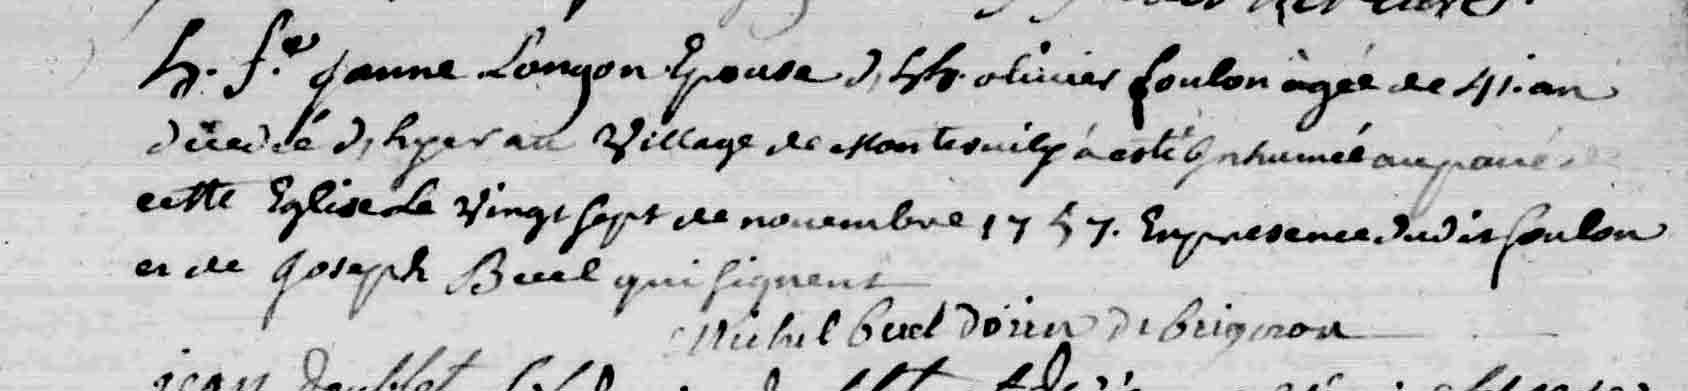 h. f.e Janne Longon Epouse d'hh. olivier foulon agée de 41. an
decedée d'hyer au village de Monteruily à esté Inhumée au pavé de
cette Eglise Le vingt sept de novembre 1757. En presence dudit foulon
et de Joseph Buel qui signent
Michel buel doien de brigeron
jean